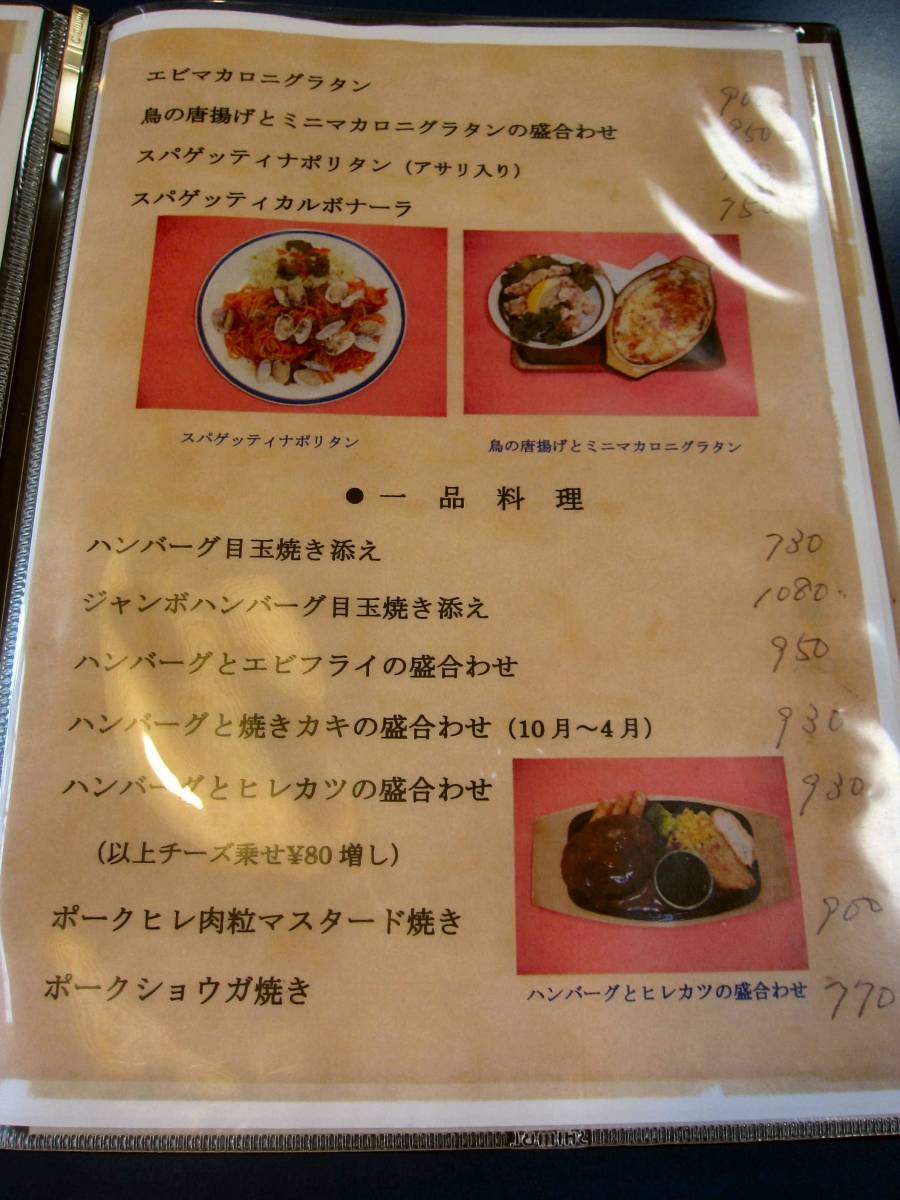 エビマカロニグラタン 900
鳥の唐揚げとミニマカロニグラタンの盛合わせ 950
スパゲッティナポリタン（アサリ入り）
スパゲッティカルボナーラ 750
スパゲッティナポリタン
鳥の唐揚げとミニマカロニグラタン
●一品料理
ハンバーグ目玉焼き添え 730
ジャンボハンバーグ目玉焼き添え 1080
ハンバーグとエビフライの盛合わせ 950
ハンバーグと焼きカキの盛合わせ（10月～4月） 930
ハンバーグとヒレカツの盛合わせ 930
（以上チーズ乗せ¥80増し）
ポークヒレ肉粒マスタード焼き 900
ポークショウガ焼き 770
ハンバーグとヒレカツの盛合わせ